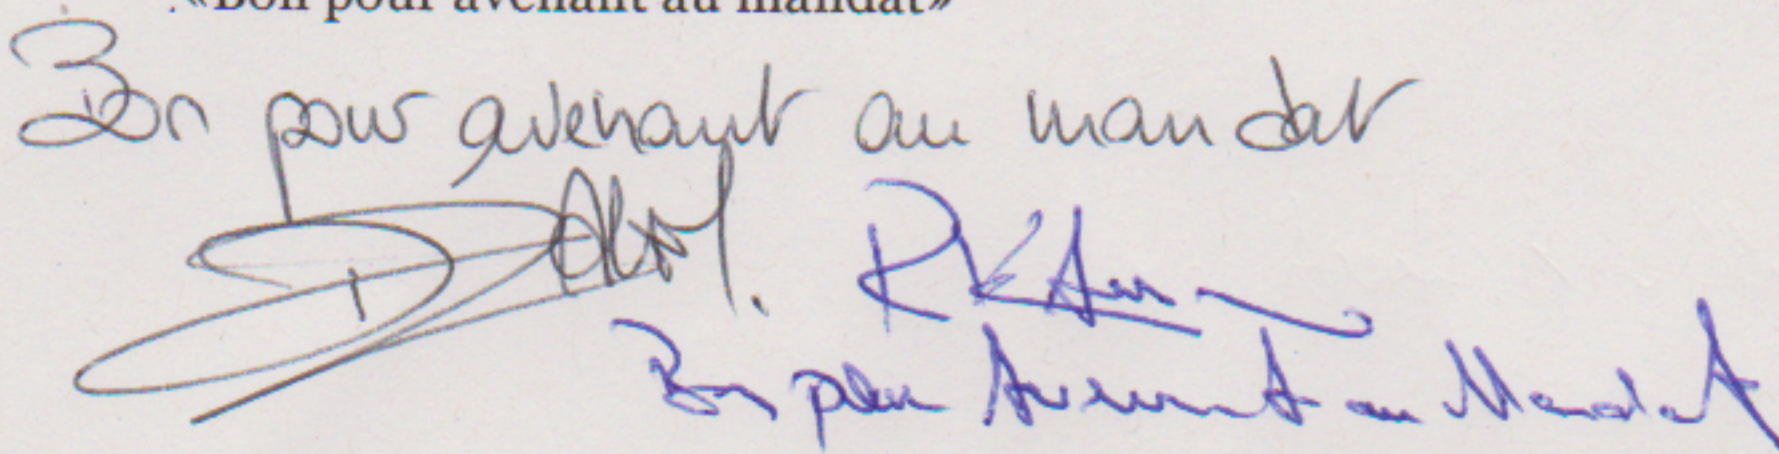 «Bon pour avenant au mandat»
Bon pour avenant au mandat
Bon pour Avenant au Mandat